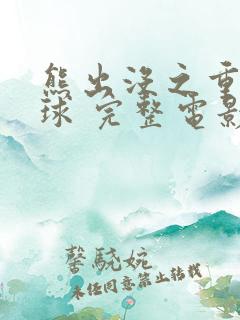 熊出没之重
球 完整电影
馨騐婉
未经同意禁止转载